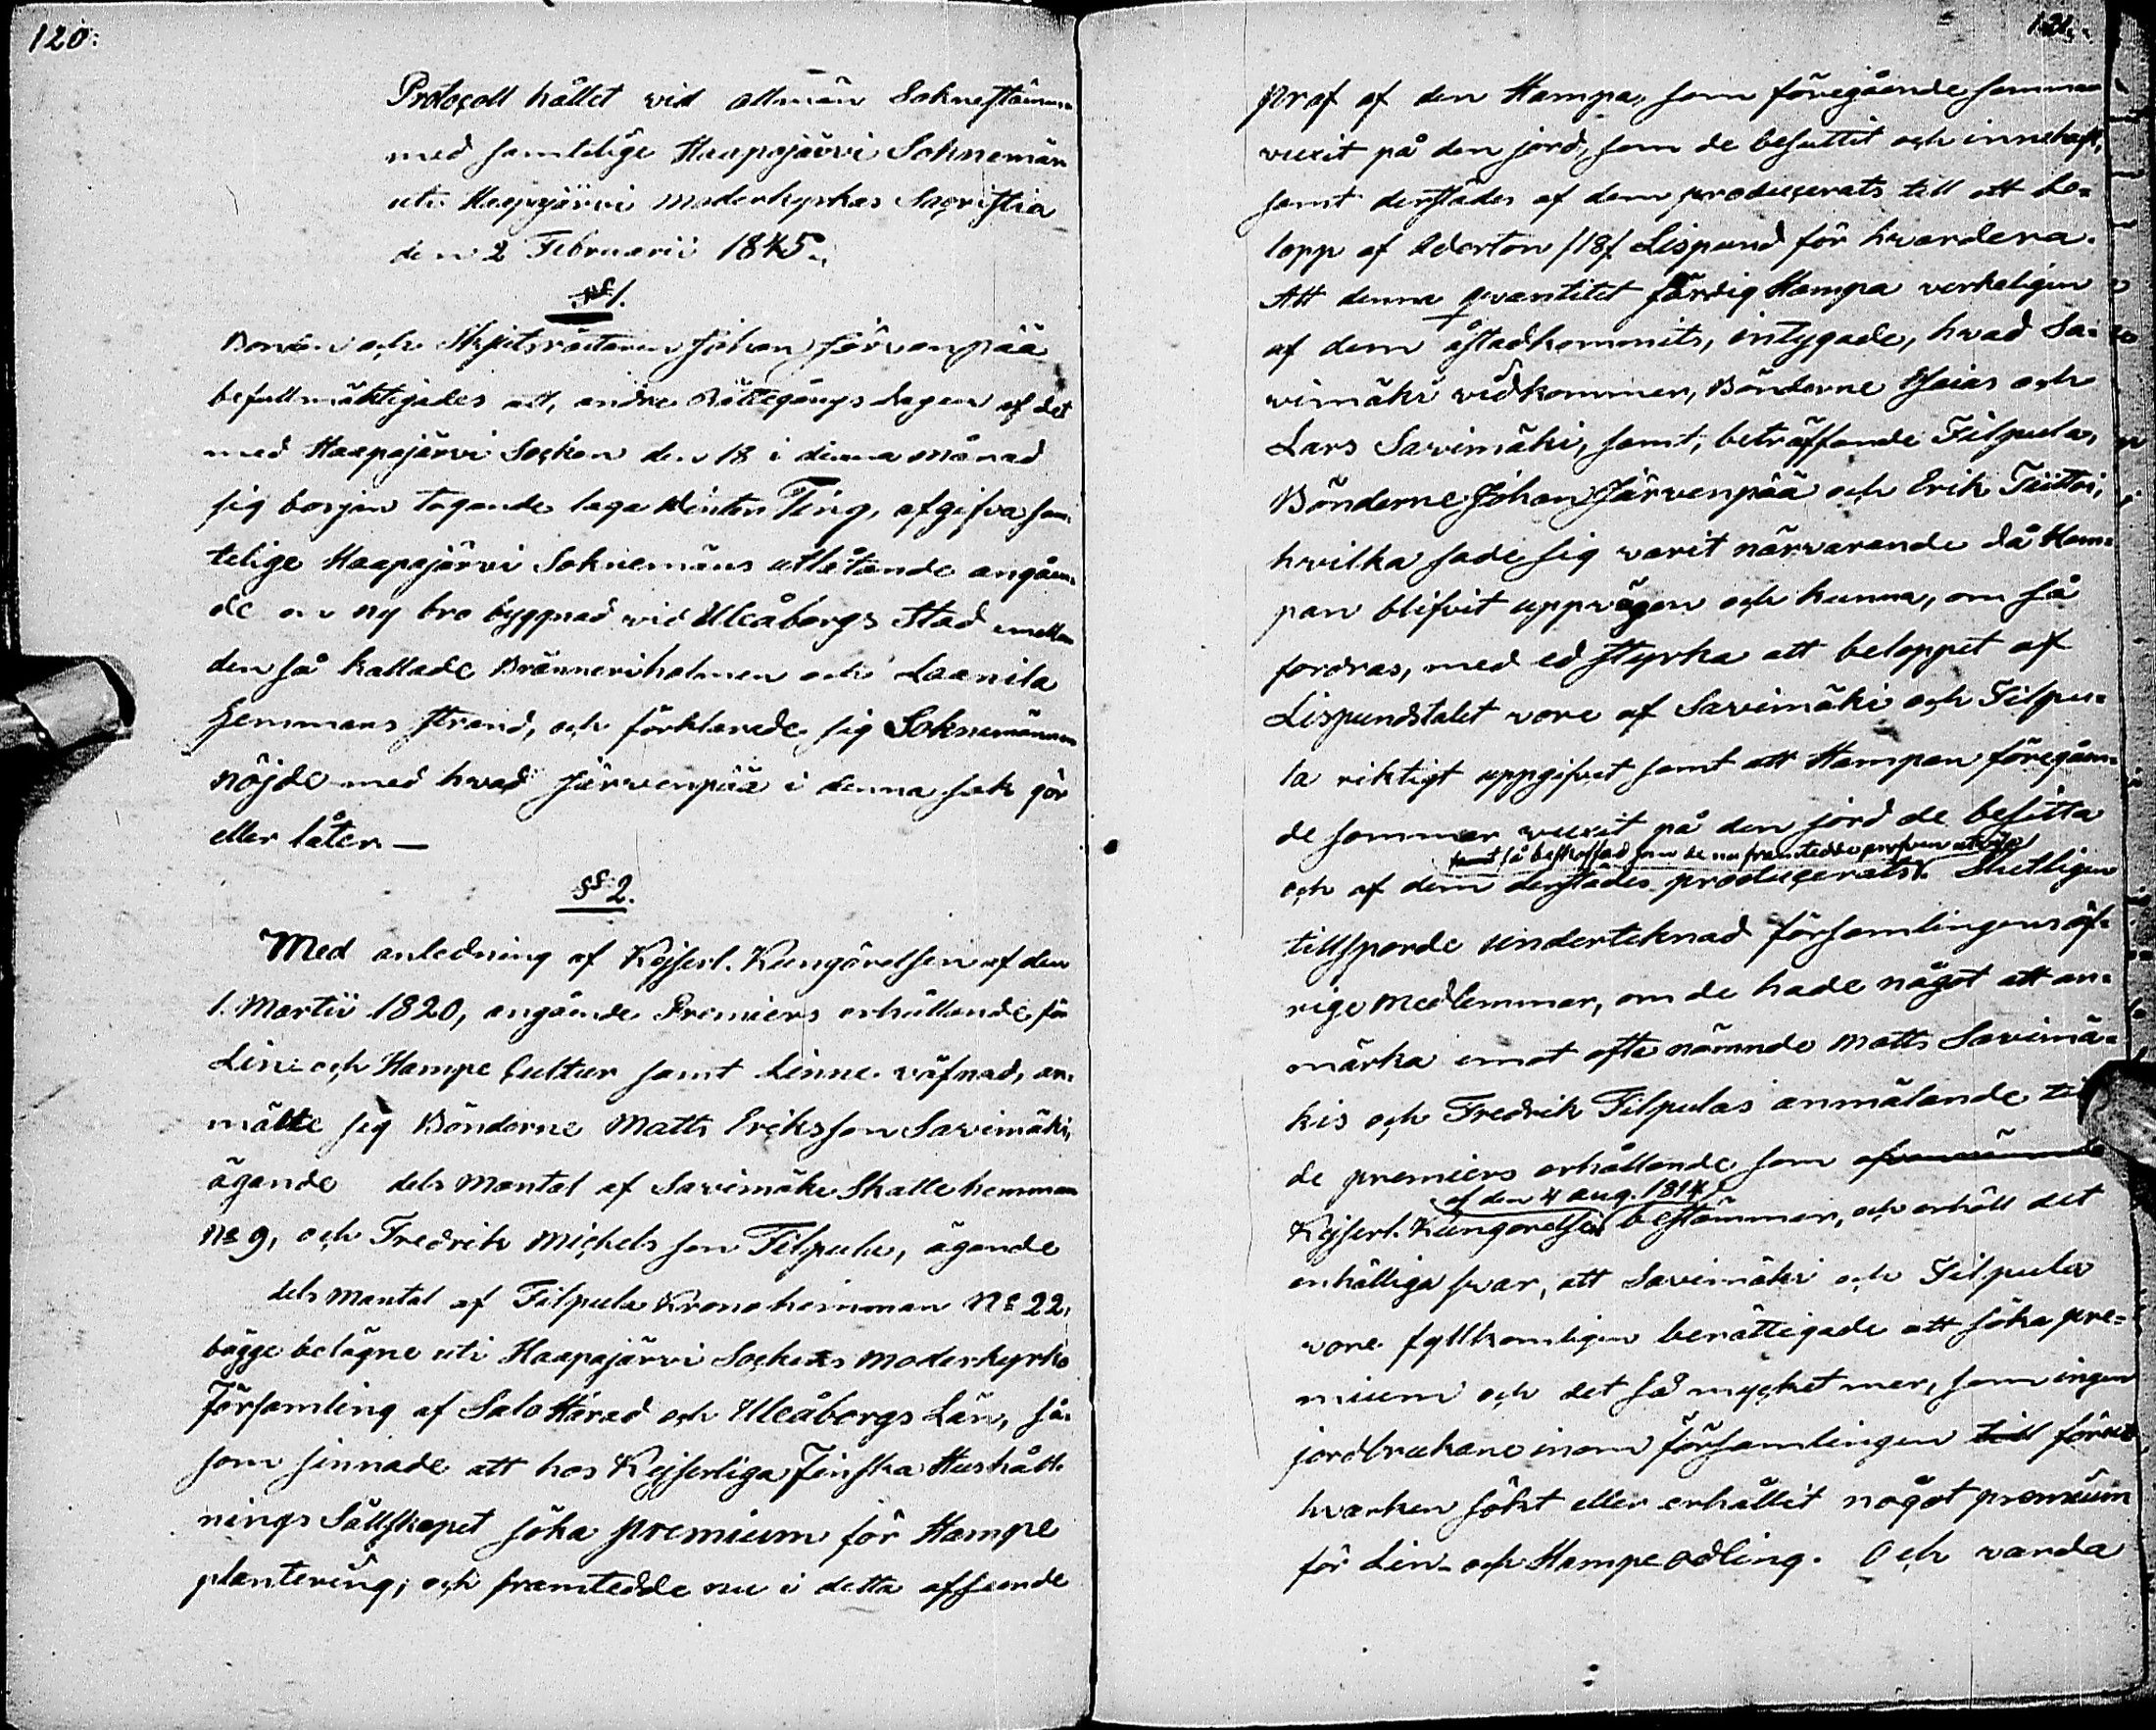 120:
Protocoll hållet vid allmän Soknestämma
med samtelige Haapajärvi Soknemän
uti Haapajärvi moderkyrkas Sacristia
den 2 Februarii 1845.
§ 1.
Bonden och Skjutsrättaren Johan Järvenpää
befullmäktigades att, andra Rättegångs dagen af det
med Haapajärvi Socken den 18 i denna månad
sig börjen tagande laga Vinter Ting, afgifva sam-
telige Haapajärvi Soknemäns utlåtande angåen-
de en ny bro byggnad vid Uleåborgs Stad emellan
den så kallade Bränneriholmen och Laanila
hemmans strand, och förklarade sig Soknemännen
nöjde med hvad Järvenpää i denna sak gör
eller låter —
§ 2.
Med anledning af Kejserl. Kungörelsen af den
1. Martii 1820, angående Premiers erhållande för
Lin- och Hampe Cultur samt Linne väfnad, an-
mälte sig Bönderne Matts Eriksson Savimäki,
ägande dels Mantal af Savimäki Skatte hemman
No 9, och Fredrik Michelsson Filpula, ägande
dels mantal af Filpula Kronohemman No 22,
bägge belägne uti Haapajärvi Sockens moderkyrko
Församling af Salo Härad och Uleåborgs Län, så-
som sinnade att hos Kejserliga Finska Hushåll-
nings Sällskapet söka premium för Hampe
plantering; och framtedde nu i detta afseende
121.
prof af den Hampa, som föregående sommar
vuxit på den jord, som de besuttit och innehaft,
samt derstädes af dem producerats till ett be-
lopp af Aderton /18/ Lispund för hvardera.
Att denna qvantitet färdig Hampa verkeligen
af dem åstadkommits, intygade, hvad Sa-
vimäki vidkommer, Bönderne Esaias och
Lars Savimäki, samt, beträffande Filpula,
Bönderne Johan Järvenpää och Erik Tiitto,
hvilka sade sig varit närvarande då Ham-
pan blifvit uppvägen och kunna, om så
fordras, med ed styrka att beloppet af
Lispundstalet vore af Savimäki och Filpu-
la riktigt uppgifvet samt att Hampan föregåen-
de sommar vuxit på den jord de besitta
samt så beskaffad som de nu framtedde profven utvisa
och af dem derstädes producerats. Slutligen
tillsporde undertecknad församlingens öf-
rige medlemmar, om de hade något att an-
märka emot ofta nämnde Matts Savimä-
kis och Fredrik Filpulas anmälande till
de premiers erhållande som ofvannämnde
af den 4 aug. 1814
Kejserl. Kungörelsen bestämmer, och erhöll det
enhälliga svar, att Savimäki och Filpula
vore fullkomligen berättigade att söka pre-
mium och det så mycket mer, som ingen
jordbrukare inom församlingen till förut
hvarken sökt eller erhållit något premium
för Lin- och Hampe odling. Och varda